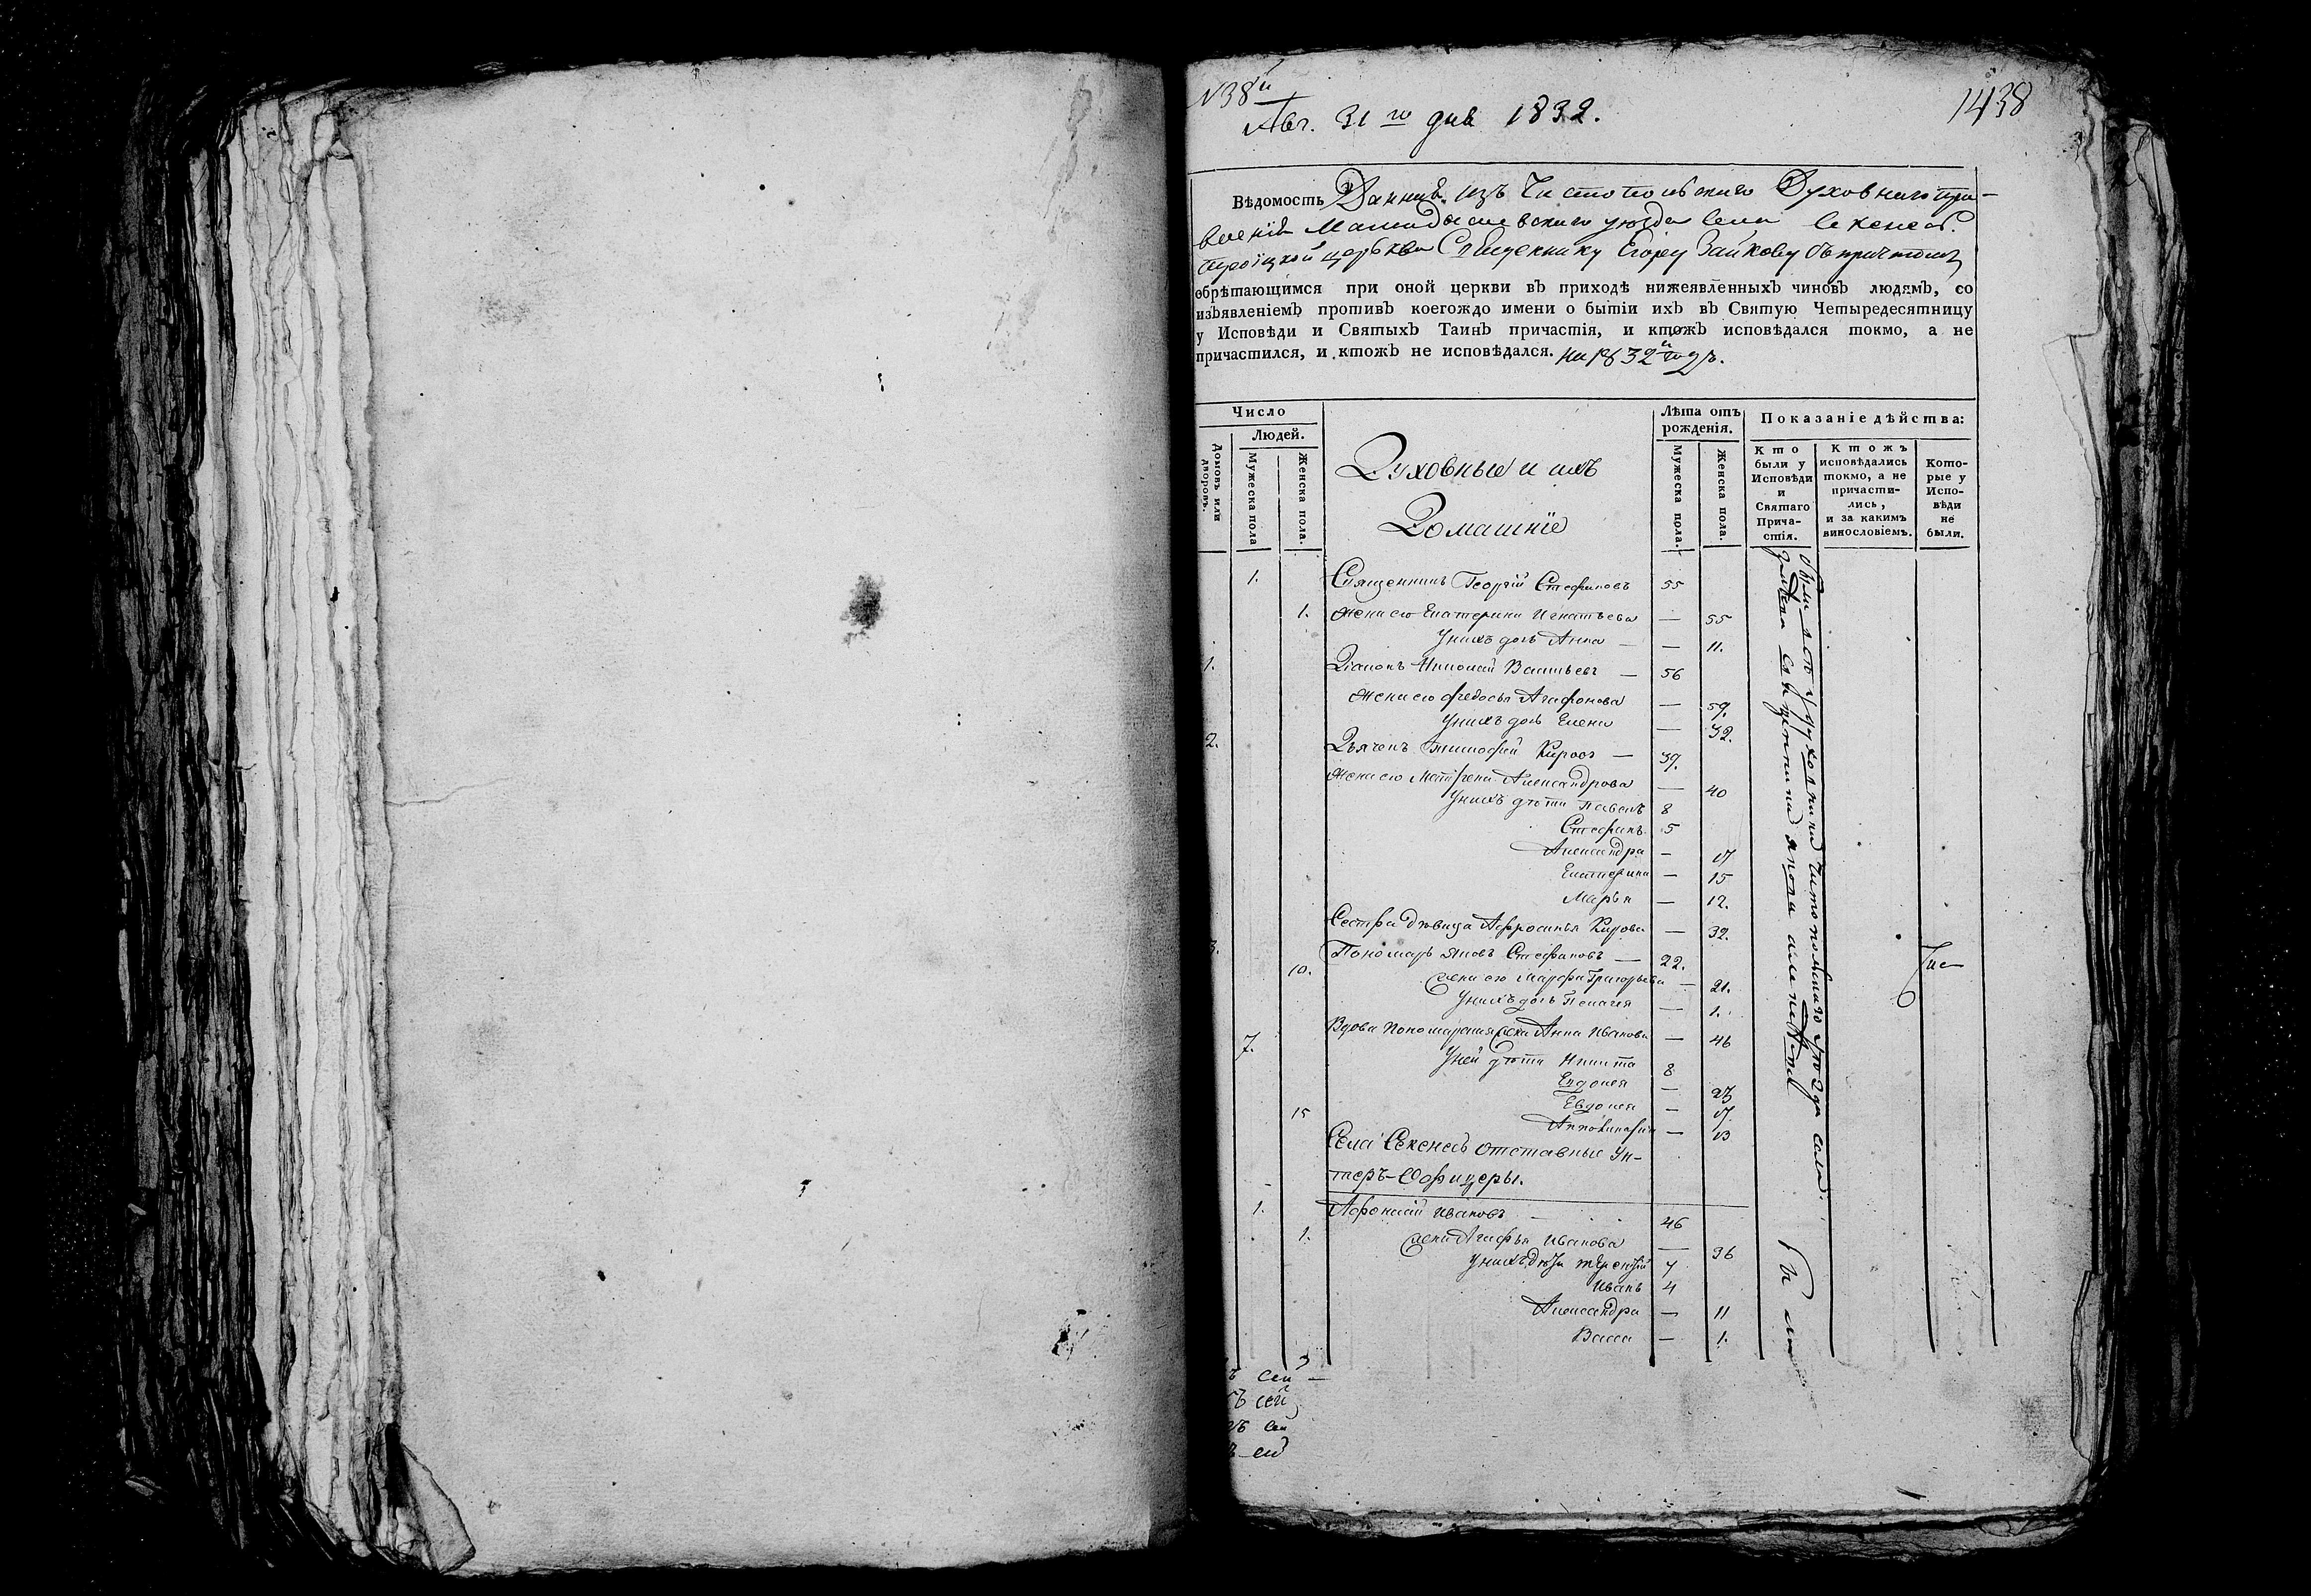 N38й
Авг. 31го дня 1832.
1438
Вѣдомость Данная изъ Чистопольскаго Духовнаго пра-
вленія Мамадышевскаго уѣзда села Секенесь
троицкой церкви Священнику Егору Зайкову съ причтомъ
обрѣтающимся при оной церкви въ приходѣ нижеявленныхъ чиновъ людямъ, со
изъявленіемъ противъ коегождо имени о бытіи ихъ въ Святую Четыредесятницу
у Исповѣди и Святыхъ Таинъ причастія, и ктожъ исповѣдался токмо, а не
причастился, и ктожъ не исповѣдался. на 1832й годъ.
Число
Людей.
Домовъ или дворовъ.
Мужеска пола
Женска пола.
Духовные и ихъ
Домашніе
Лѣта отъ
рожденія.
Мужеска пола.
Женска пола.
Показаніе дѣйства:
Кто
были у
Исповѣди
и
Святаго
Прича-
стія.
Ктожъ
исповѣдались
токмо, а не
причасти-
лись,
и за какимъ
винословіемъ.
Кото-
рые у
Испо-
вѣди
не
были.
1. Священникъ Георгій Стефановъ 55
1. жена его Екатерина Игнатьева — 55
У нихъ дочь Анна — — 11.
1. Діаконъ Николай Васильевъ — 56
жена его Федосья Агафонова — 59.
У нихъ дочь Елена — 32.
2. Дьячекъ Тимофей Кировъ — 39.
жена его Матрена Александрова — 40
У нихъ дѣти Павелъ 8
Стефанъ 5
Александра — 17
Екатерина — 15
Марья — 12.
Сестра дѣвица Афросинья Кирова — 32.
3. Пономарь Яковъ Стефановъ — 22.
10. жена его Марфа Григорьева — 21.
У нихъ дочь Пелагея — 1.
Вдова пономарская жена Анна Иванова — 46
7. У ней дѣти Никита 8
— 23
15 Евдокея — 17
— 13
Села Секенесь отставные Ун-
теръ-Офицеры.
1. Афонасій Ивановъ — 46
1. жена Агафья Иванова — 36
У нихъ дѣти Терентій 7
Иванъ 4
Александра — 11
Васса — 1.
сей
ъ сей
сей
ъ сей